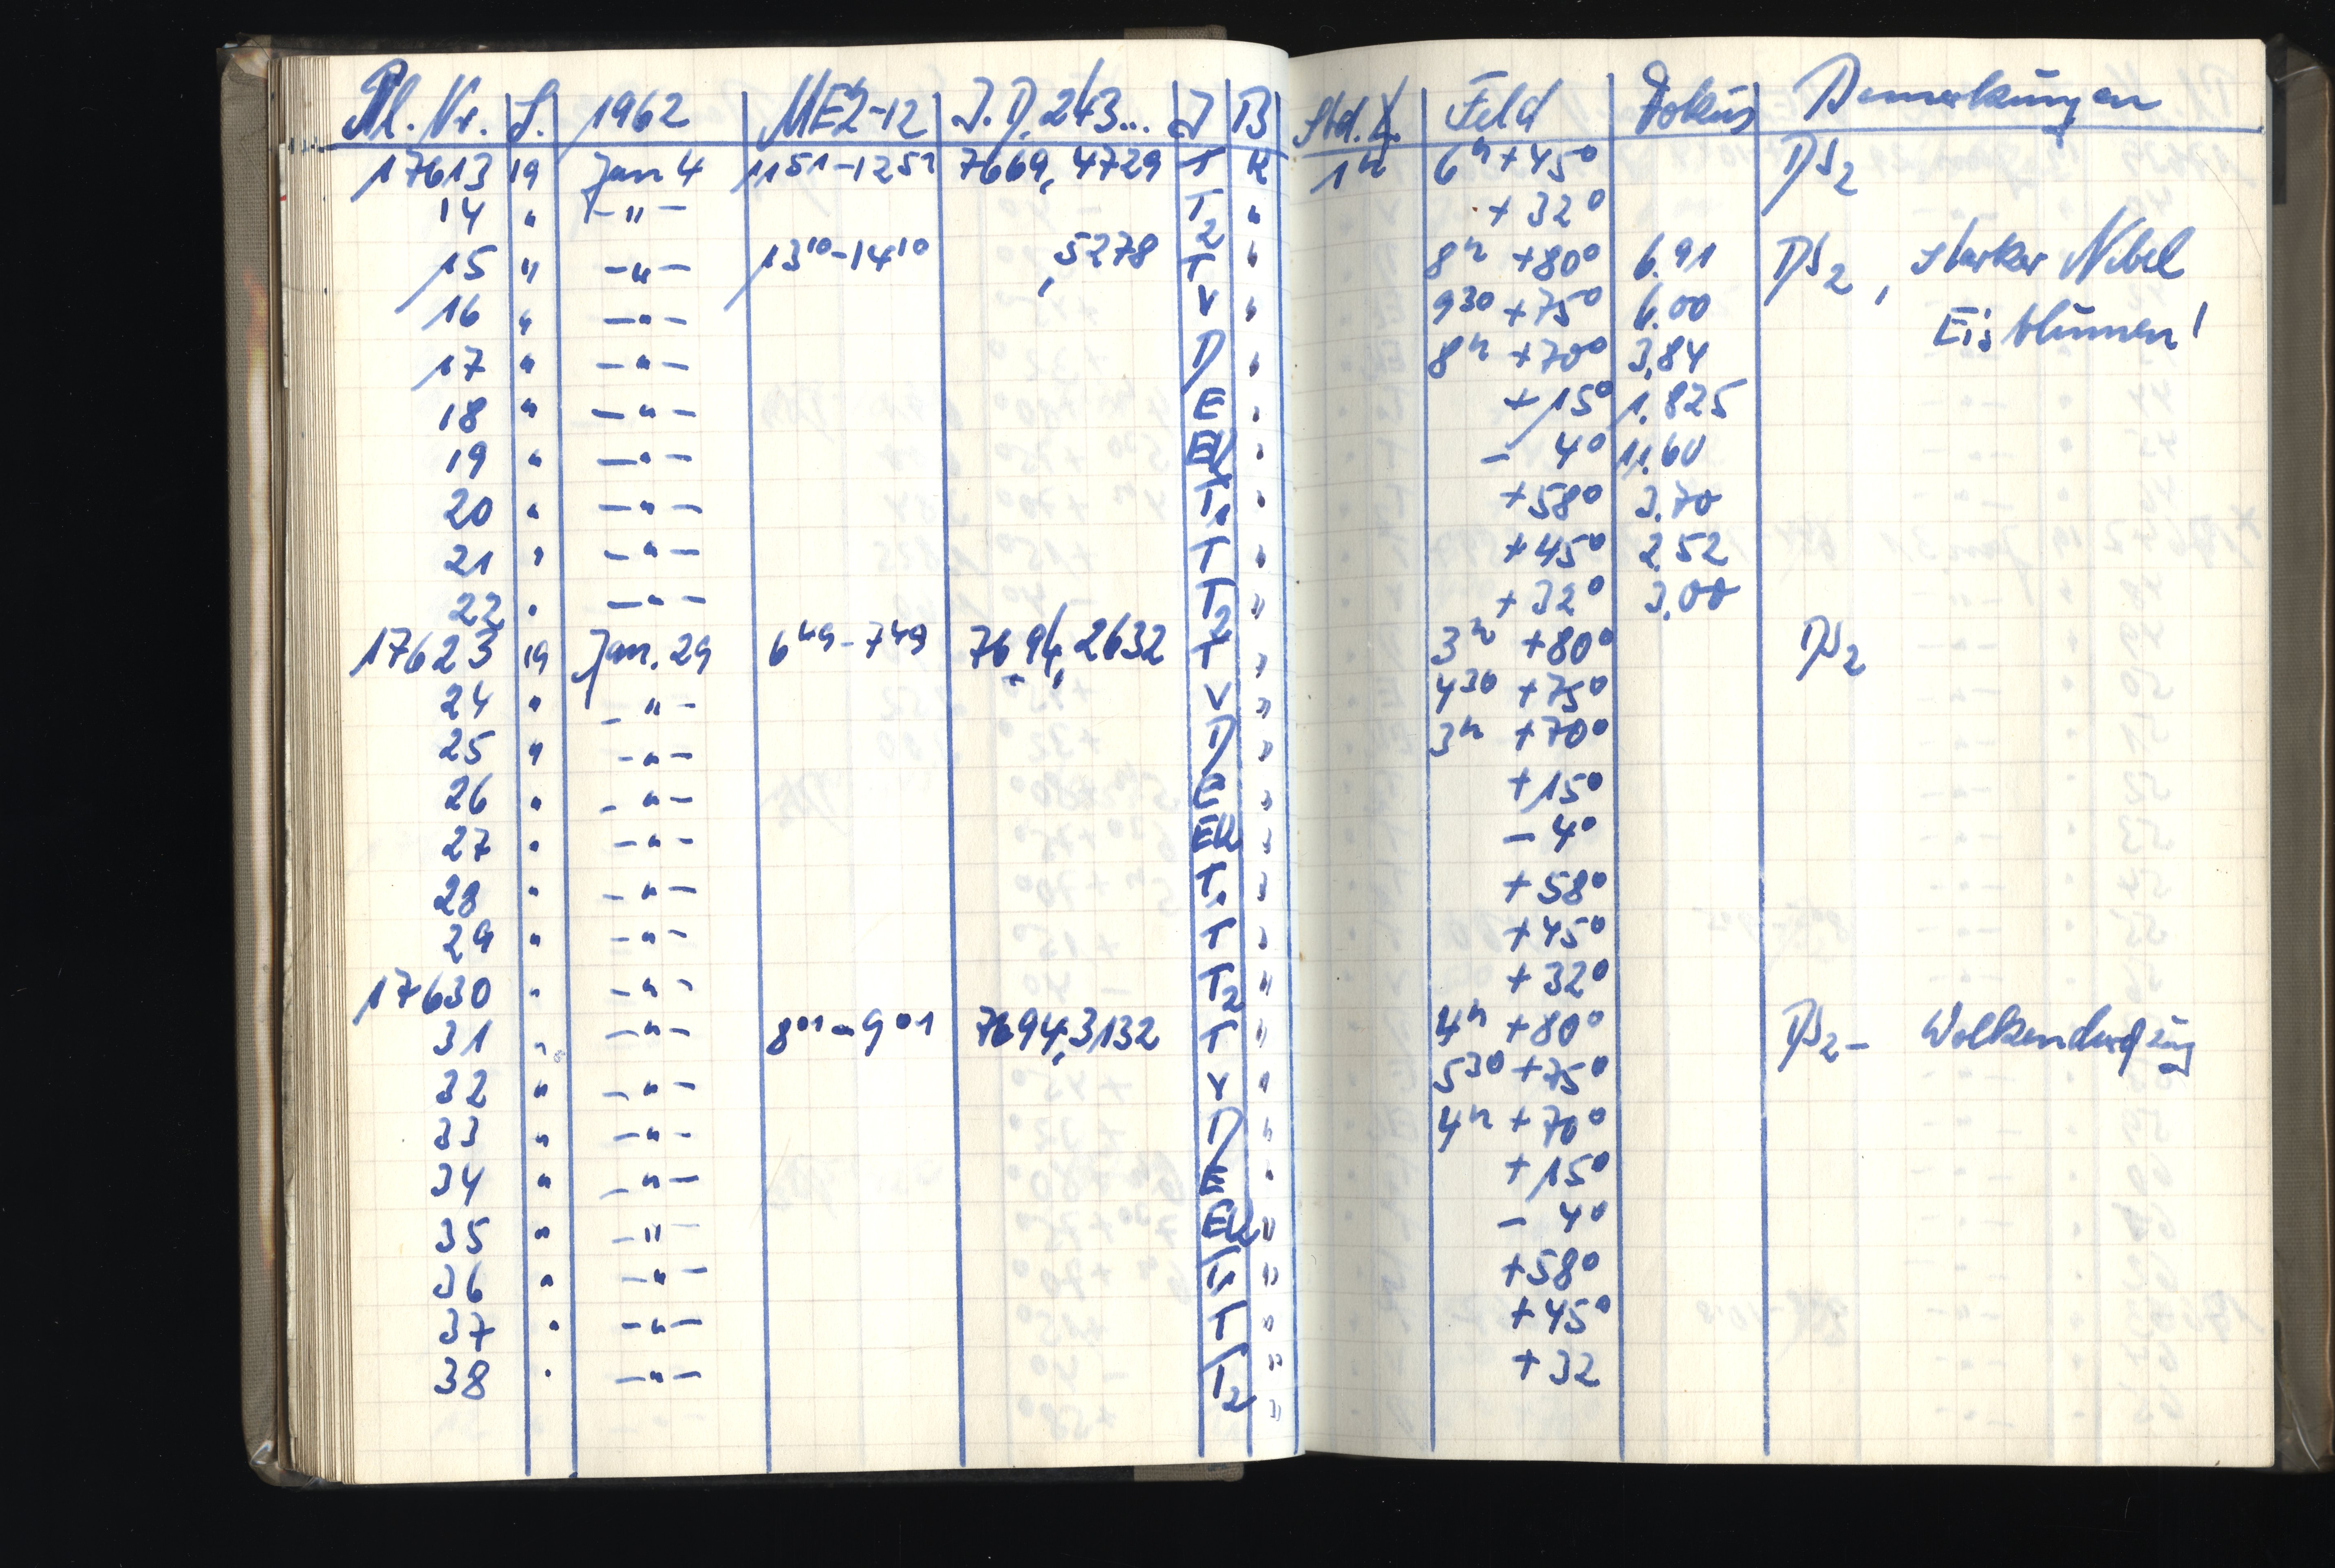 Pl. Nr. S. 1962 MEZ-12 J.D. 243... J B Std. Feld Fokus Bemerkungen
17613 19 Jan 4 11 51 - 12 51 7669,4729 T K 1h 6h +45° DS2
14 " - " - T2 " +32°
15 " - " - 13 10 - 14 10 ,5278 T " 8h +80° 6.91 DS2, starker Nebel
16 " - " - V " 9 30 +75° 6.00 Eisblumen!
17 " - " - D " 8h +70° 3,84
18 " - " - E " +15° 1.825
19 " - " - EK " - 4° 11.60
20 " - " - T1 " +58° 3.70
21 " - " - T " +45° 2.52
22 " - " - T2 " +32° 3,00
17623 19 Jan. 29 6 49 - 7 49 7694,2632 T " 3h +80° DS2
24 " - " - V " 4 30 +75°
25 " - " - D " 3h +70°
26 " - " - E " +15°
27 " - " - EK " - 4°
28 " - " - T1 " +58°
29 " - " - T " +45°
17630 " - " - T2 " +32°
31 " - " - 8 01 - 9 01 7694,3132 T " 4h +80° DS2 - Wolkendurchzug
32 " - " - V " 5 30 +75°
33 " - " - D " 4h +70°
34 " - " - E " +15°
35 " - " - EK " - 4°
36 " - " - T1 " +58°
37 " - " - T " +45°
38 " - " - T2 " +32